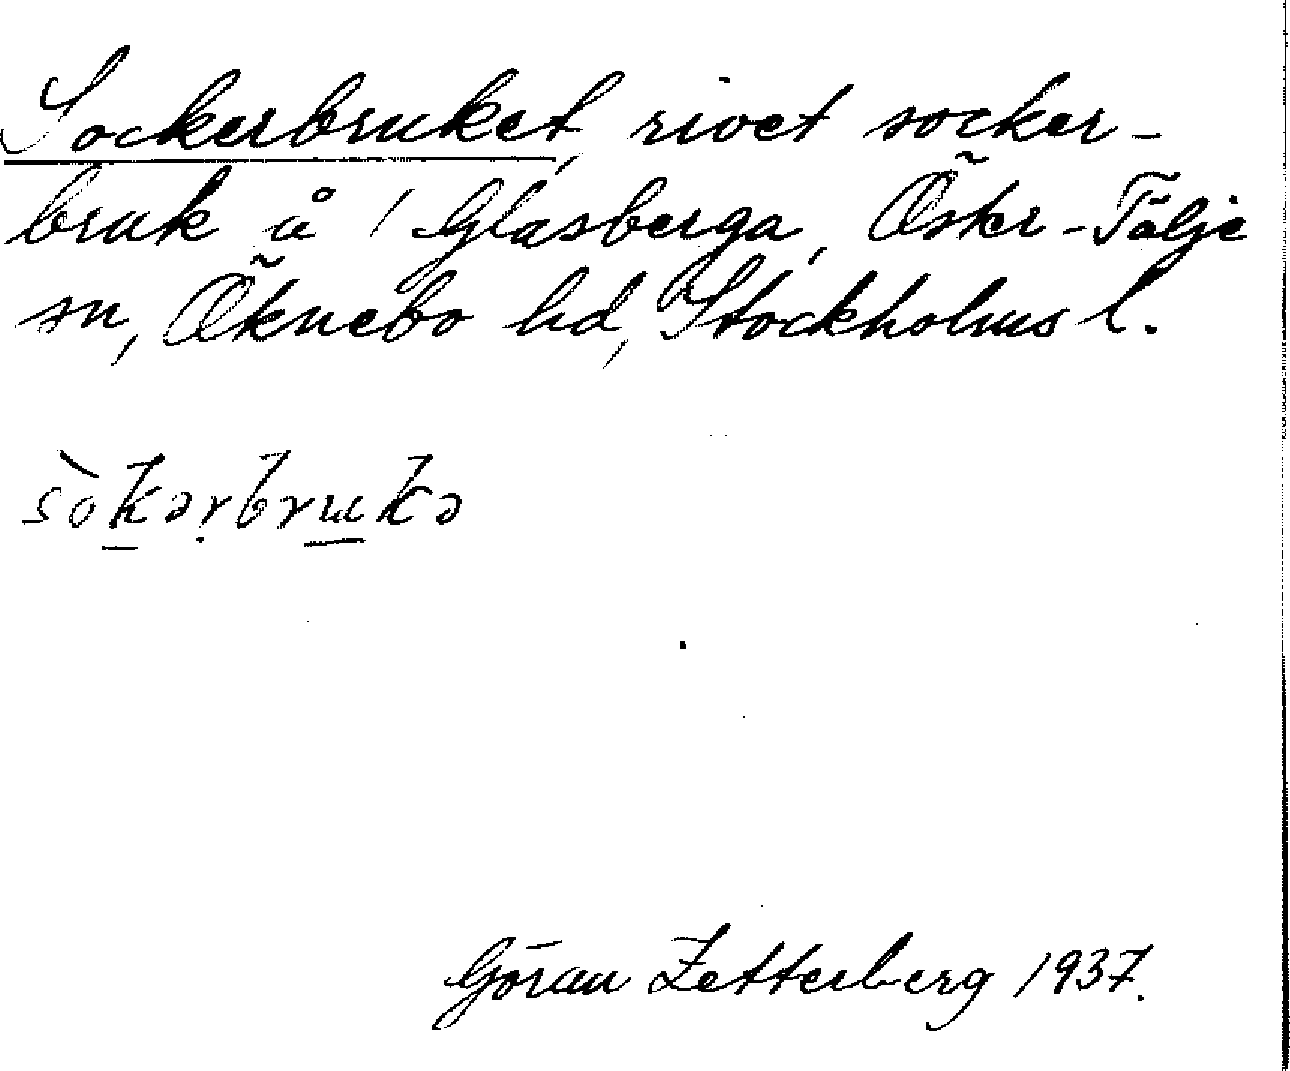 Sockerbruket, rivet socker-
bruk å 1 Glasberga, Öster-Tälje
sn, Öknebo hd, Stockholms l.
sòkərbrukə
Göran Zetterberg 1937.